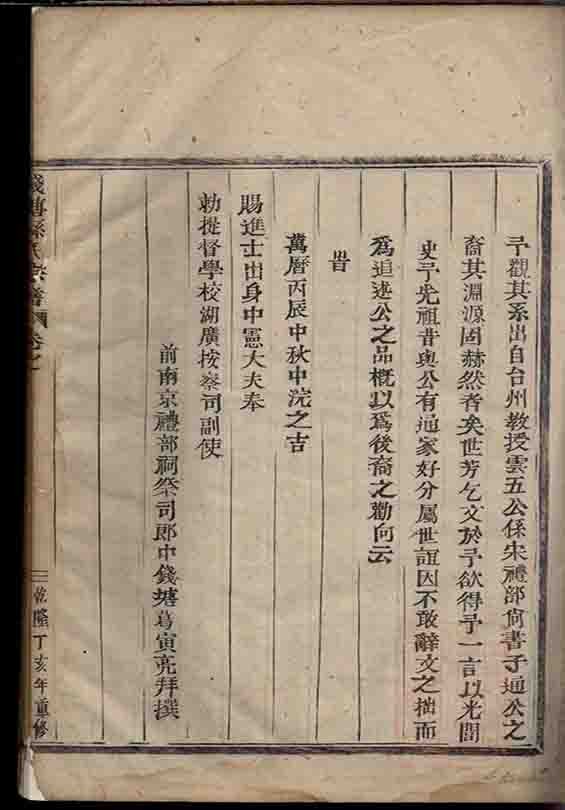 予觀其系出自台州教授雲五公係宋禮部尙書子通公之
裔其淵源固赫然者矣世芳乞文於予欲得予一言以光閭
史予先祖昔與公有通家好分屬世誼因不敢辭文之拙而
爲追述公之品概以爲後裔之勸向云
旹
萬曆丙辰中秋中浣之吉
賜進士出身中憲大夫奉
勅提督學校湖廣按察司副使
前南京禮部祠祭司郎中錢塘葛寅亮拜撰
孫氏宗譜 卷之
乾隆丁亥年重修